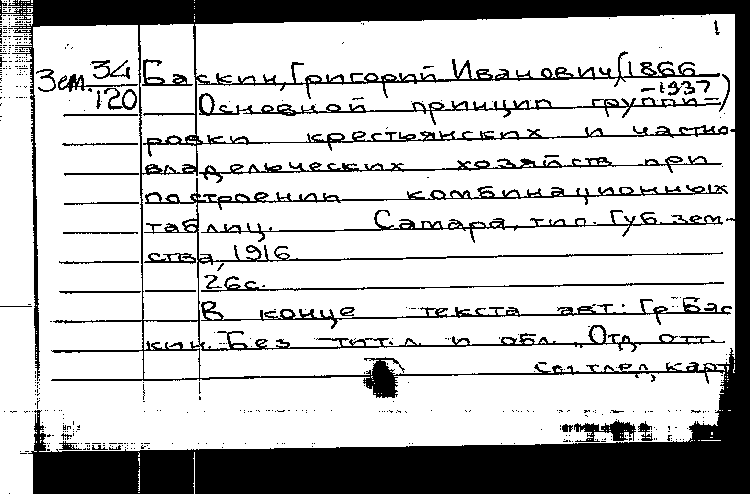 1
Зем. 34
120
Баскин, Григорий Иванович, (1866
-1937)
Основной принцип группи=
ровки крестьянских и частно-
владельческих хозяйств при
построении комбинационных
таблиц. Самара, тип. Губ. зем-
ства, 1916.
26с.
В конце текста авт.: Гр. Бас
кин. Без тит. л. и обл. „Отд. отт.
См. след. карт